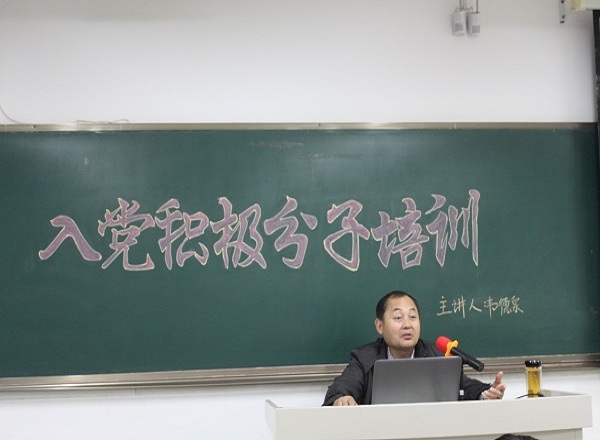 入党积极分子培训
主讲人:韦德泉